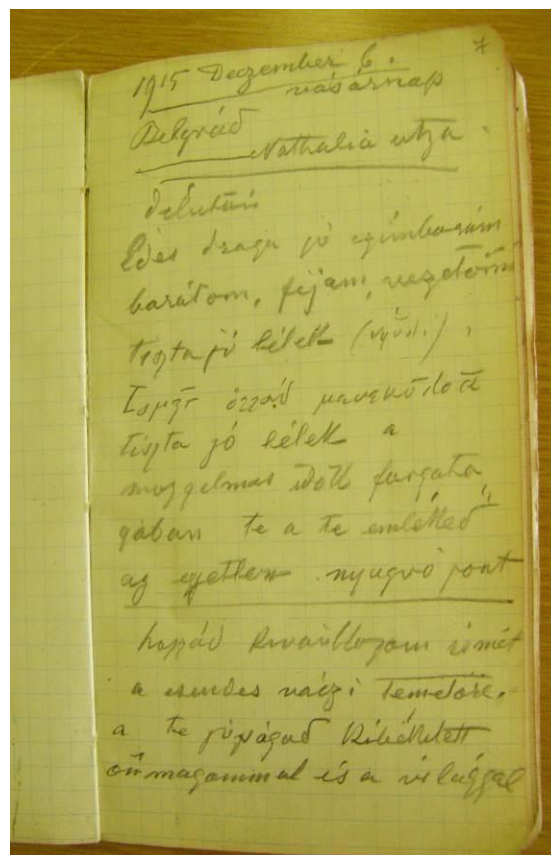 1915 Dezember 6.
vasárnap
Belgrád
Nathalia utza.
délután
Édes draga jó czimborám
barátom, fejem, vezetőm
tiszta jó lélek
Ismét hozzád menekülök
tiszta jó lélek a
mozgalmas idők forgata
gában te a te emléked
az egyetlen nyugvó pont
hozzád kivánkozom ismét
a csendes váczi temetőre.
a te jóságod kibékitett
önmagammal és a világgal